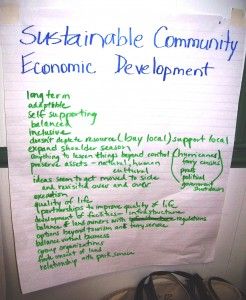 Sustainable Community
Economic Development
long term
adaptible
self supporting
balanced
inclusive
doesn't deplete resource (buy local) support local
expand shoulder season
anything to lessen things beyond control (hurricanes
preserve assets - natural, human ferry issues
cultural political
ideas seem to get moved to side government
and revisited over and over shutdown)
execution
quality of life
partnerships to improve quality of life
development of facilities - infrastructure
balance of land owners with regulations
options beyond tourism and ferry service
balance virtual business
group organizations
amount of land
relationship with park service